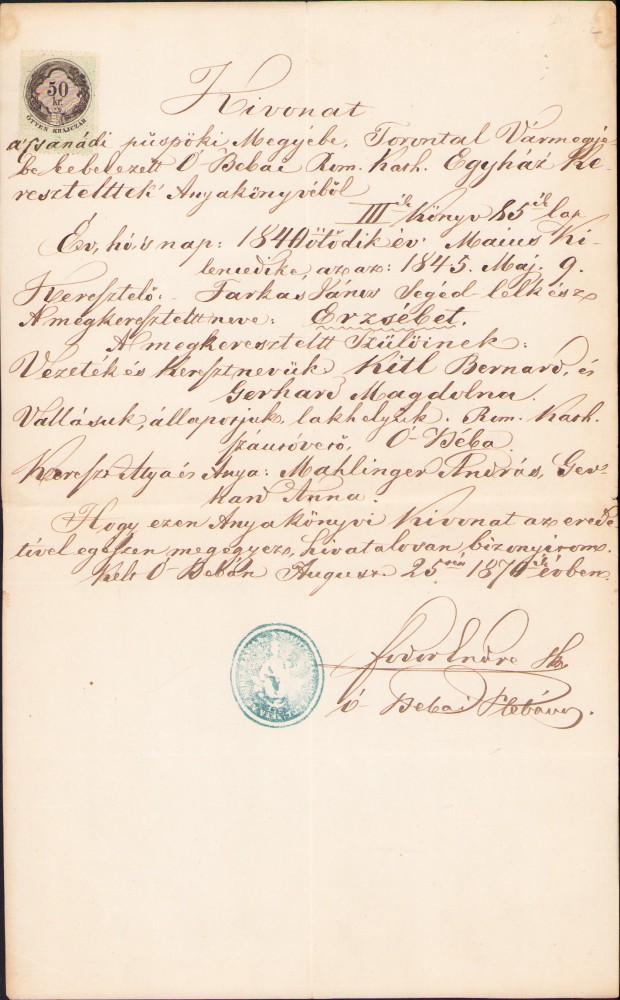 50
kr.
ÖTVEN KRAJCZÁR
Kivonat
a' Csanádi püspöki Megyébe, Torontal Vármegyé-
be kebelezett Ó Bebai Rom. Kath. Egyház Ke-
reszteltek' Anyakönyvéből
III ik Könyv 85 ik lap
Év, hó, 's nap: 1840 ötödik év: Május Ki-
lencedike, azaz: 1845. Maj. 9.
Keresztelő: Farkas János Segéd-lelkész
A megkeresztelt neve: Erzsébet.
A' megkeresztelt Szülőinek:
Vezeték és Keresztnevük, Kitl Bernard, és
Gerhard Magdolna.
Vallásuk, állapotjuk, lakhelyük. Rom. Kath.
szántóvető, Ó-Beba
Kereszt Atya és Anya: Mahlinger András, Ger-
hard Anna.
Hogy ezen Anyakönyvi Kivonat az erede-
tivel egészen megegyez, hivatalosan bizonyitom.
Kelt Ó-Bebán Auguszt. 25 én 187 évben.
Fodor Endre sk.
ó-Bebai Plebános.